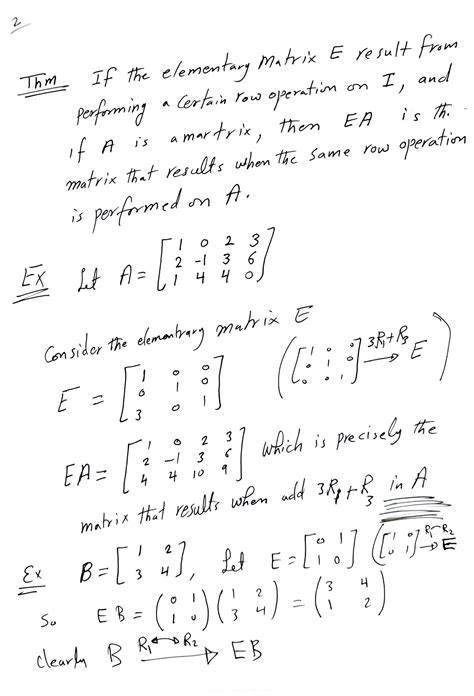 2
Thm If the elementary Matrix E result from
performing a certain row operation on I, and
if A is a martrix, then EA is th.
matrix that results when the same row operation
is performed on A.
Ex Let A = [1 0 2 3
2 -1 3 6
1 4 4 0]
Consider the elementrary matrix E
E = [1 0 0
0 1 0
3 0 1] ([1 0 0
0 1 0
0 0 1] 3R1+R3 → E)
EA = [1 0 2 3
2 -1 3 6
4 4 10 9] which is precisely the
matrix that results when add 3R1+R3 in A
Ex B = [1 2
3 4], Let E = [0 1
1 0] ([1 0
0 1] R1↔R2 → E
So EB = (0 1
1 0) (1 2
3 4) = (3 4
1 2)
clearly B R1↔R2 → EB